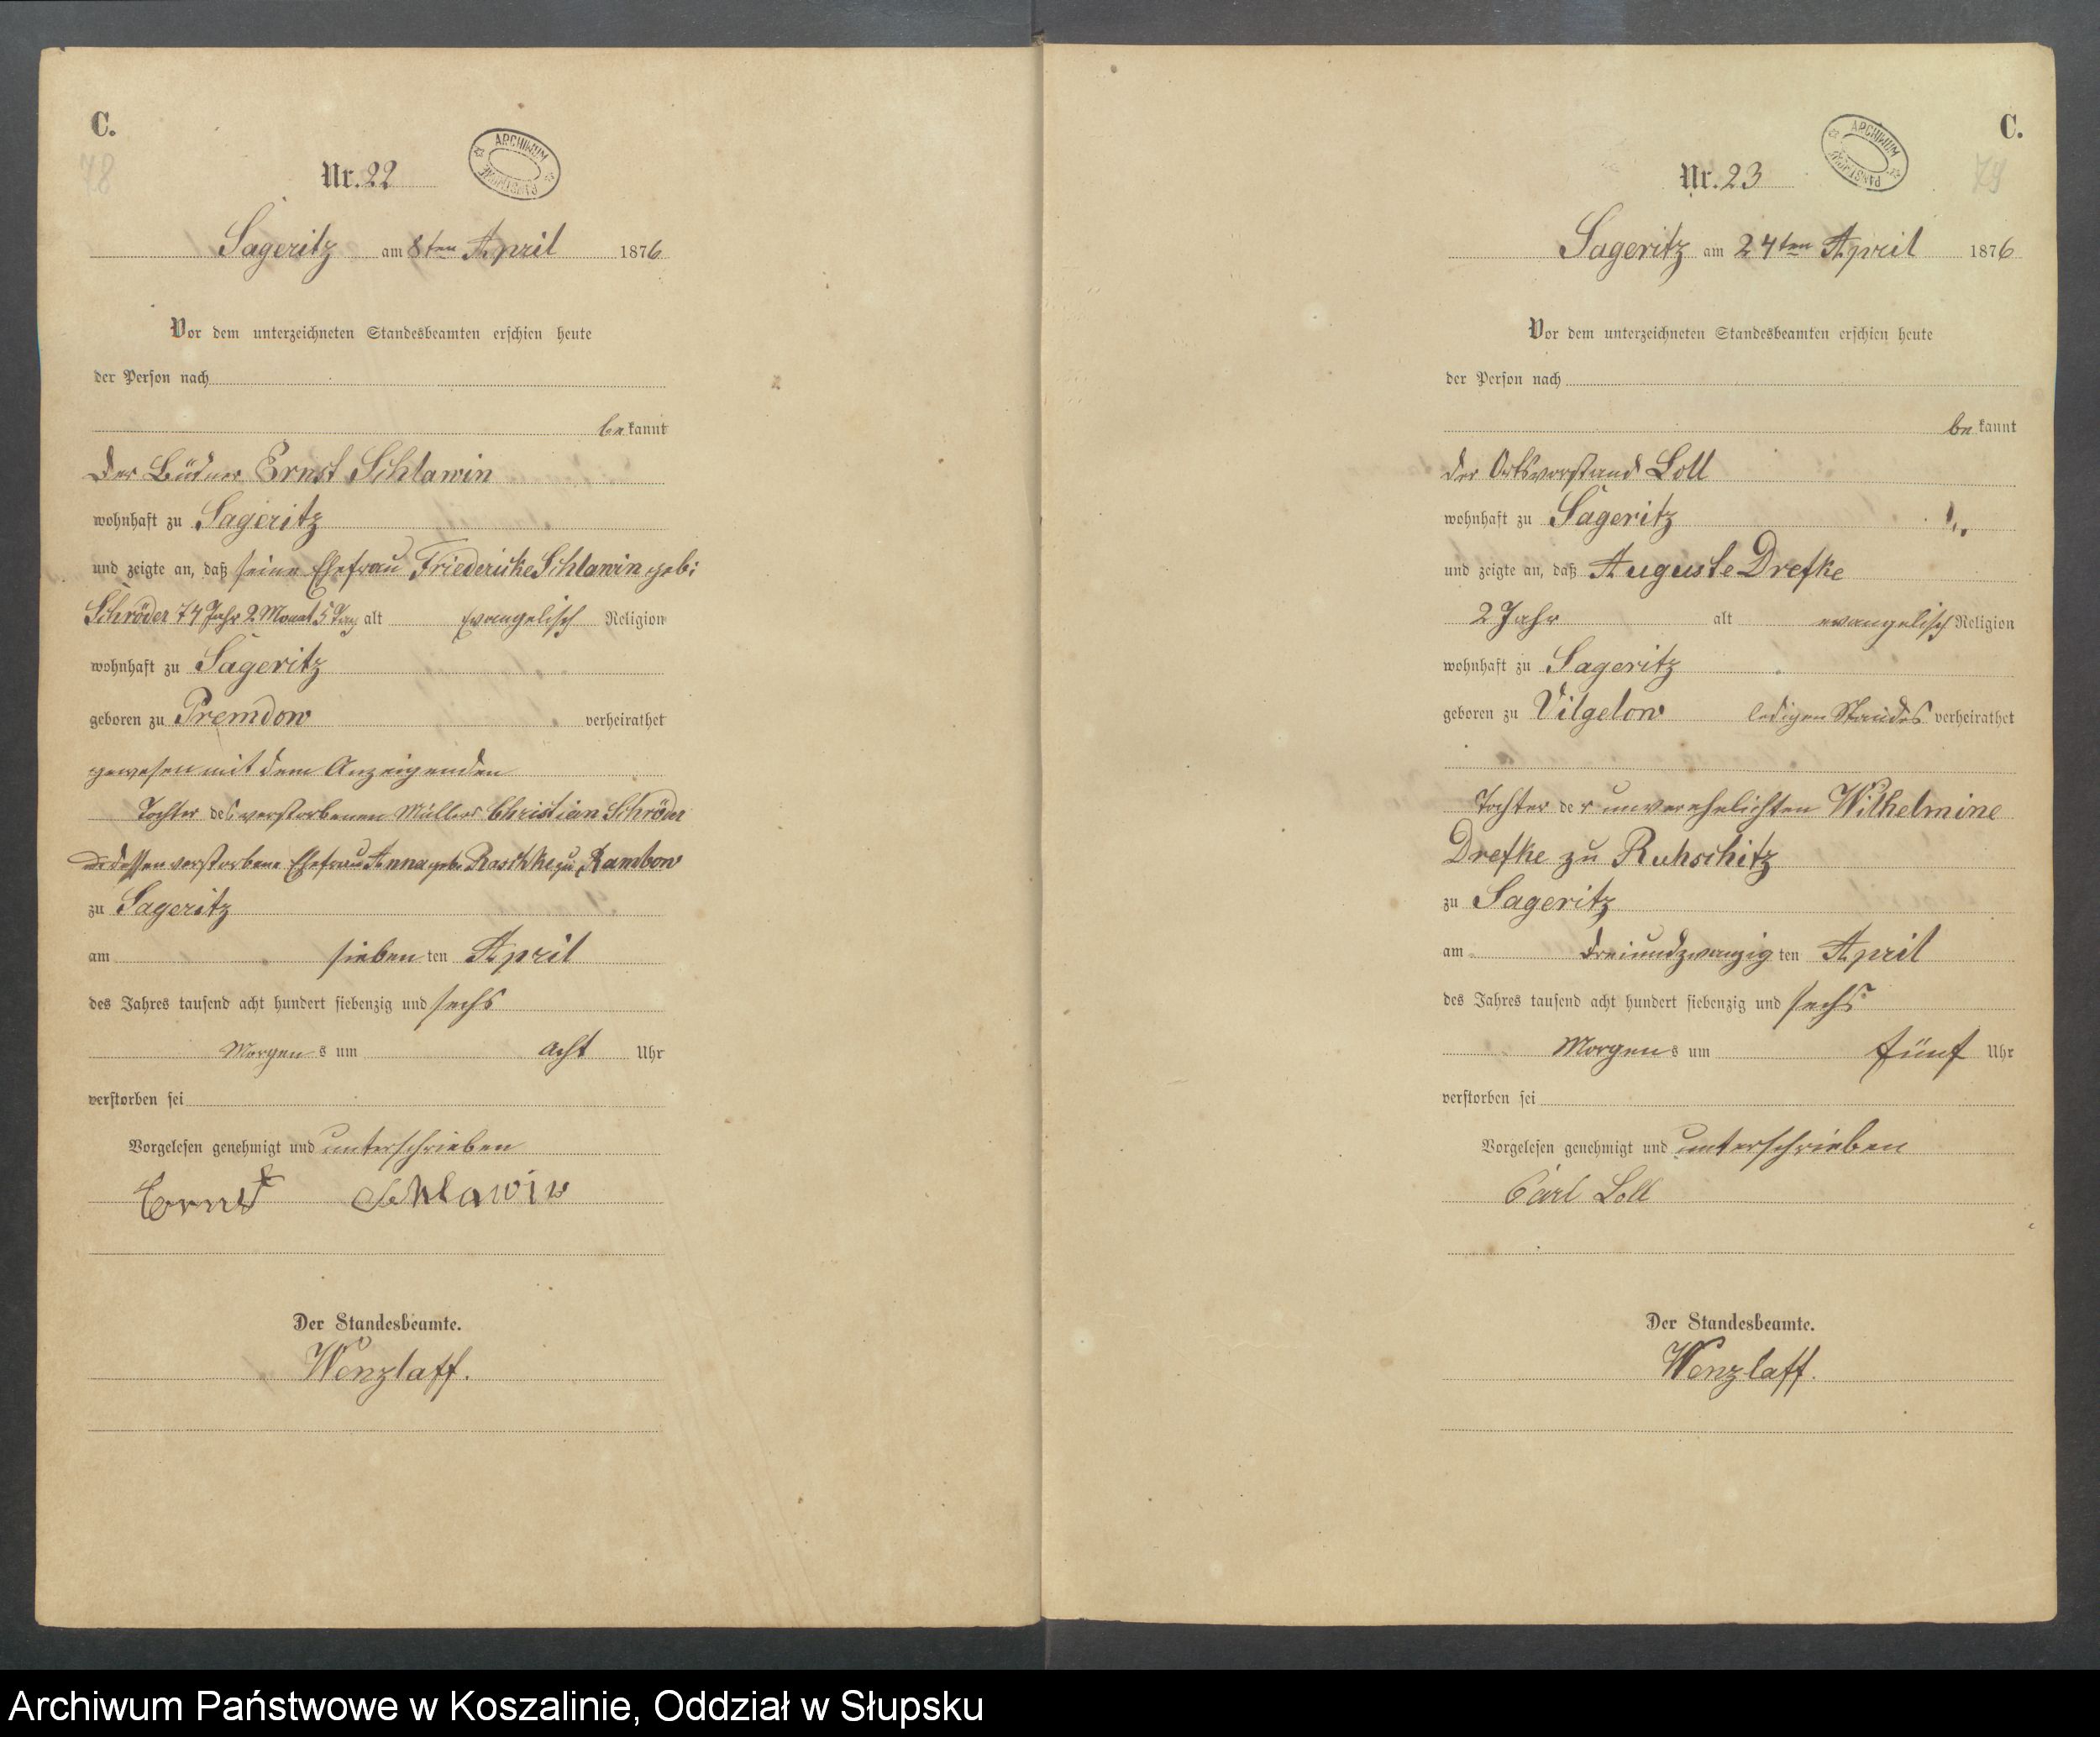 C.
78
Nr. 22
ARCHIWUM PAŃSTWOWE
Sageritz am 8ten April 1876
Vor dem unterzeichneten Standesbeamten erschien heute
der Person nach
bekannt
der Büdner Ernst Schlawin
wohnhaft zu Sageritz
und zeigte an, daß seine Ehefrau Friedericke Schlawin geb:
Schröder 74 Jahr 2 Monat 5 Tag alt Evangelisch Religion
wohnhaft zu Sageritz
geboren zu Premdow verheirathet
gewesen mit dem Anzeigenden
Tochter des verstorbenen Müllers Christian Schröder
dessen verstorbene Ehefrau Anna geb. Raschke zu Rambow
zu Sageritz
am sieben ten April
des Jahres tausend acht hundert siebenzig und sechs
Morgens um acht Uhr
verstorben sei
Vorgelesen genehmigt und unterschrieben
Ernst Schlawin
Der Standesbeamte.
Wenzlaff.
C.
79
Nr. 23
ARCHIWUM PAŃSTWOWE
Sageritz am 24ten April 1876
Vor dem unterzeichneten Standesbeamten erschien heute
der Person nach
bekannt
der Ortsvorstand Loll
wohnhaft zu Sageritz
und zeigte an, daß Auguste Drefke
2 Jahr alt evangelisch Religion
wohnhaft zu Sageritz
geboren zu Vilgelow ledigen Standes verheirathet
Tochter der unverehelichten Wilhelmine
Drefke zu Ruhschitz
zu Sageritz
am dreiundzwanzig ten April
des Jahres tausend acht hundert siebenzig und sechs
Morgens um fünf Uhr
verstorben sei
Vorgelesen genehmigt und unterschrieben
Carl Loll
Der Standesbeamte.
Wenzlaff.
Archiwum Państwowe w Koszalinie, Oddział w Słupsku